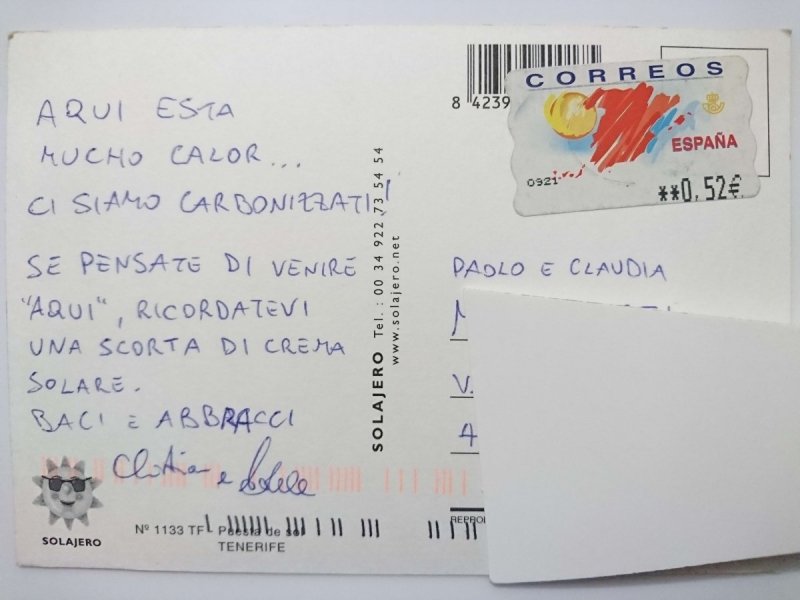 AQUI ESTA
MUCHO CALOR...
CI SIAMO CARBONIZZATI!
SE PENSATE DI VENIRE
"AQUI", RICORDATEVI
UNA SCORTA DI CREMA
SOLARE.
BACI E ABBRACCI
e
SOLAJERO
Nº 1133 TF Puesta de sol
TENERIFE
SOLAJERO Tel.: 00 34 922 73 54 54
www.solajero.net
8 4239
CORREOS
ESPAÑA
0921
**0,52€
PAOLO E CLAUDIA
V.